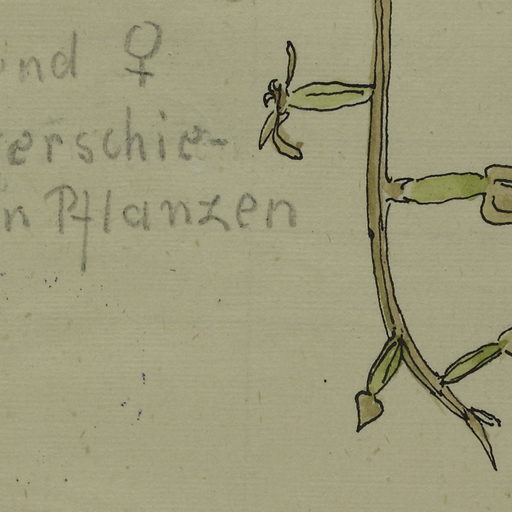 und ♀
verschie-
n Pflanzen